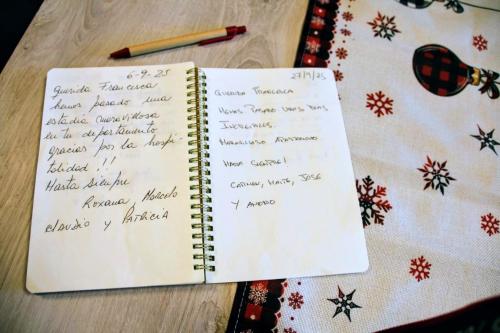 6-9-25
Querida Francisca
hemos pasado una
estadía maravillosa
en tu departamento
gracias por la hospi-
talidad!!
Hasta siempre
Roxana, Marcelo
Claudio y Patricia
27/9/25
Querida Francisca
Hemos Pasado Unos Días
Increíbles.
Maravilloso
Hasta Siempre!
Carmen, Maite, José
y